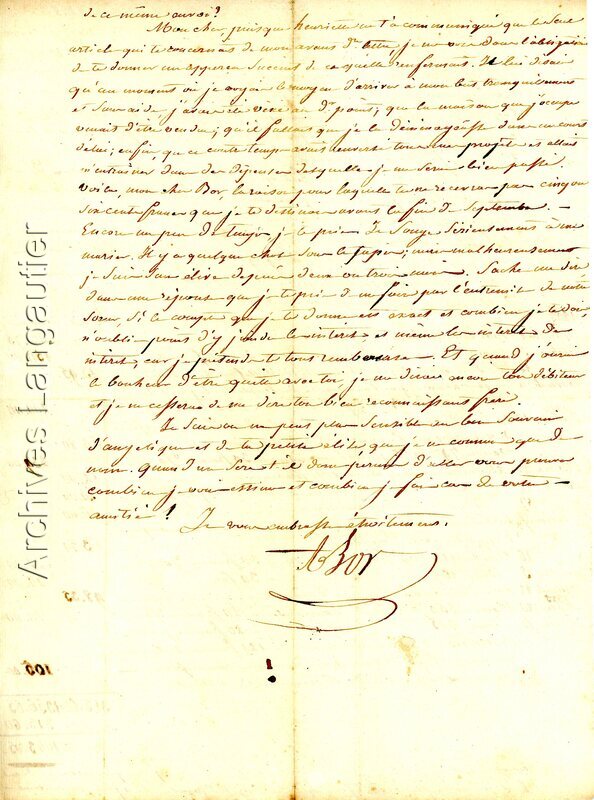 de ce même envoi?
Mon cher, puisque henriette ne t'a communiqué que le seul
article qui te concernait de mon avant dre lettre, je me vois dans l'obligation
de te donner un apperçu succint de ce qu'elle renfermait. Je lui disais
qu'au moment où je croyais d'arriver à mon but tranquillement
et sans aide, j'avais été
venait d'être vendue; qu'il fallait que je le déménageasse dans un court
délai; enfin que ce contretemps avait renversé tous mes projets et allait
m'entrainer dans des dépenses desquelles je me serais bien passé.
Voilà, mon cher Bor, la raison pour laquelle tu ne recevras pas cinq ou
six cents francs que je te destinais avant la fin de septembre. —
Encore un peu de temps, je te prie. Je songe sérieusement à me
marier. Il y a quelque chose sous le tapis; mais malheureusement
je suis sans élève depuis deux ou trois mois. Sache me dire
dans une réponse que je te prie de me faire par l'entremise de notre
sœur, si le compte que je te donne est exact et combien je te dois,
n'oublie point d'y joindre les intérêts et même les intérêts des
intérêts, car je prétends te tout rembourser. Et quand j'aurai
le bonheur d'être quitte avec toi, je me dirai encore ton débiteur
et je ne cesserai de me dire ton bien reconnaissant frère.
Je suis on ne peut plus sensible au bon souvenir
d'angelique et de la petite élisa, que je ne connais que de
nom. Quand me sera-t-il donc permis d'aller vous prouver
combien je vous estime et combien je fais cas de votre —
amitié! Je vous embrasse étroitement.
A Bor
100
Archives Langautier